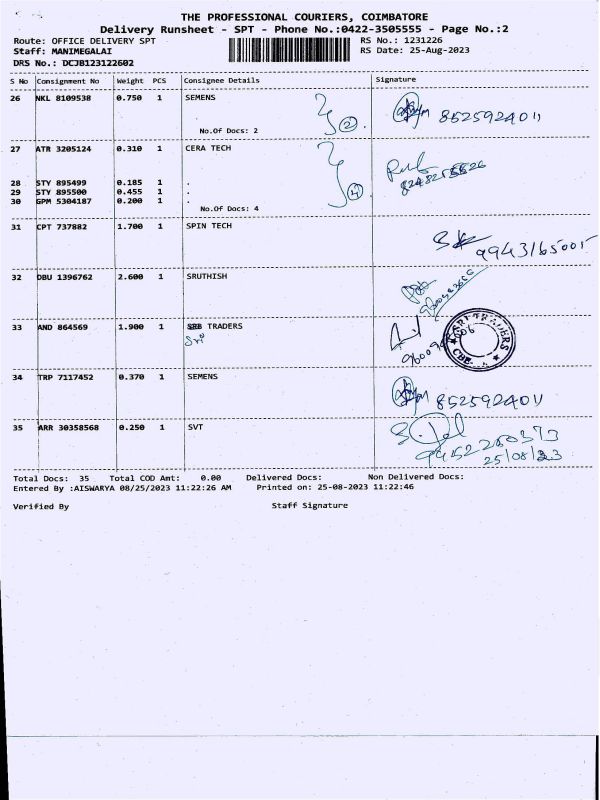 THE PROFESSIONAL COURIERS, COIMBATORE
Delivery Runsheet - SPT - Phone No.:0422-3505555 - Page No.:2
Route: OFFICE DELIVERY SPT RS No.: 1231226
Staff: MANIMEGALAI RS Date: 25-Aug-2023
DRS No.: DCJB123122602
S No Consignment No Weight PCS Consignee Details Signature
26 NKL 8109538 0.750 1 SEMENS
8525924011
No.Of Docs: 2 2
27 ATR 3205124 0.310 1 CERA TECH
28 STY 895499 0.185 1 .
29 STY 895500 0.455 1 .
30 GPM 5304187 0.200 1 .
No.Of Docs: 4 4
31 CPT 737882 1.700 1 SPIN TECH
9943165005
32 DBU 1396762 2.600 1 SRUTHISH
33 AND 864569 1.900 1 TRADERS
Sri
SRI TRADERS
CBE
34 TRP 7117452 0.370 1 SEMENS
8525924011
35 ARR 30358568 0.250 1 SVT
9452250373
25/08/23
Total Docs: 35 Total COD Amt: 0.00 Delivered Docs: Non Delivered Docs:
Entered By :AISWARYA 08/25/2023 11:22:26 AM Printed on: 25-08-2023 11:22:46
Verified By Staff Signature